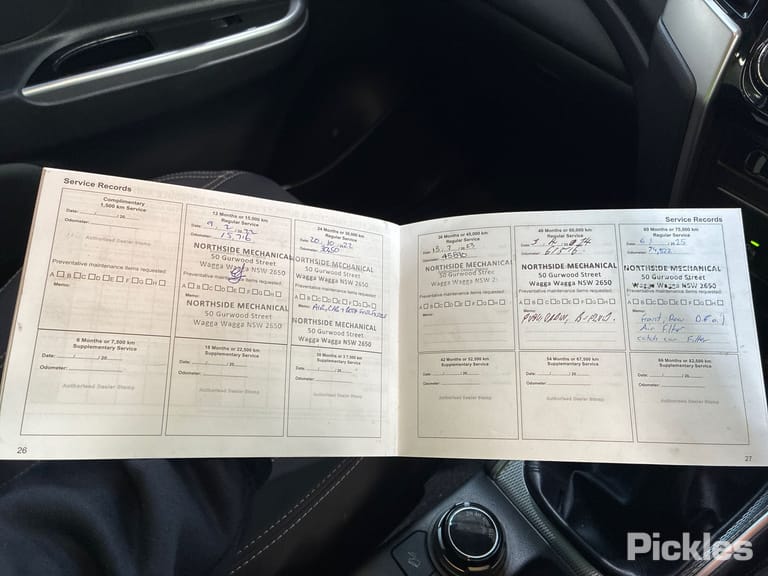 Service Records
Complimentary
1,500 km Service
Date: ___/___/20___
Odometer:
Authorised Dealer Stamp
Preventative maintenance items requested:
A B C D E F G H
Memo:
12 Months or 15,000 km
Regular Service
Date: 9 / 2 / 2022
Odometer: 15,716
NORTHSIDE MECHANICAL
50 Gurwood Street
Wagga Wagga NSW 2650
Preventative maintenance items requested:
A B C D E F G H
Memo:
NORTHSIDE MECHANICAL
50 Gurwood Street
Wagga Wagga NSW 2650
24 Months or 30,000 km
Regular Service
Date: 20 / 10 / 2022
Odometer:
NORTHSIDE MECHANICAL
50 Gurwood Street
Wagga Wagga NSW 2650
Preventative maintenance items requested:
A B C D E F G H
Memo:
NORTHSIDE MECHANICAL
50 Gurwood Street
Wagga Wagga NSW 2650
6 Months or 7,500 km
Supplementary Service
Date: ___/___/20___
Odometer:
Authorised Dealer Stamp
18 Months or 22,500 km
Supplementary Service
Date: ___/___/20___
Odometer:
Authorised Dealer Stamp
30 Months or 37,500 km
Supplementary Service
Date: ___/___/20___
Odometer:
Authorised Dealer Stamp
26
Service Records
36 Months or 45,000 km
Regular Service
Date: 15 / 7 / 2023
Odometer: 45890
NORTHSIDE MECHANICAL
50 Gurwood Street
Wagga Wagga NSW 2
Preventative maintenance items requested:
A B C D E F G H
Memo:
48 Months or 60,000 km
Regular Service
Date:
Odometer:
NORTHSIDE MECHANICAL
50 Gurwood Street
Wagga Wagga NSW 2650
Preventative maintenance items requested:
A B C D E F G H
Memo:
60 Months or 75,000 km
Regular Service
Date: 2025
Odometer: 74,522
NORTHSIDE MECHANICAL
50 Gurwood Street
Wagga Wagga NSW 2650
Preventative maintenance items requested:
A B C D E F G H
Memo:
front, Rear
Air Filter
catch can Filter
42 Months or 52,500 km
Supplementary Service
Date: ___/___/20___
Odometer:
Authorised Dealer Stamp
54 Months or 67,500 km
Supplementary Service
Date: ___/___/20___
Odometer:
Authorised Dealer Stamp
66 Months or 82,500 km
Supplementary Service
Date: ___/___/20___
Odometer:
Authorised Dealer Stamp
27
Pickles